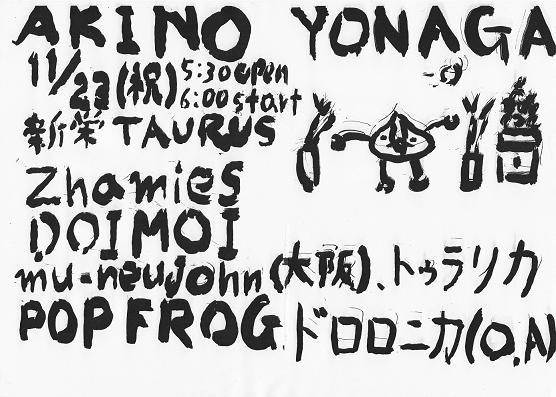 AKINO YONAGA
11/23(祝) 5:30 open
6:00 start
新栄 TAURUS
Zhamies
DOIMOI
mu-neujohn(大阪)、トゥラリカ
POP FROG ドロロニカ(O,A)